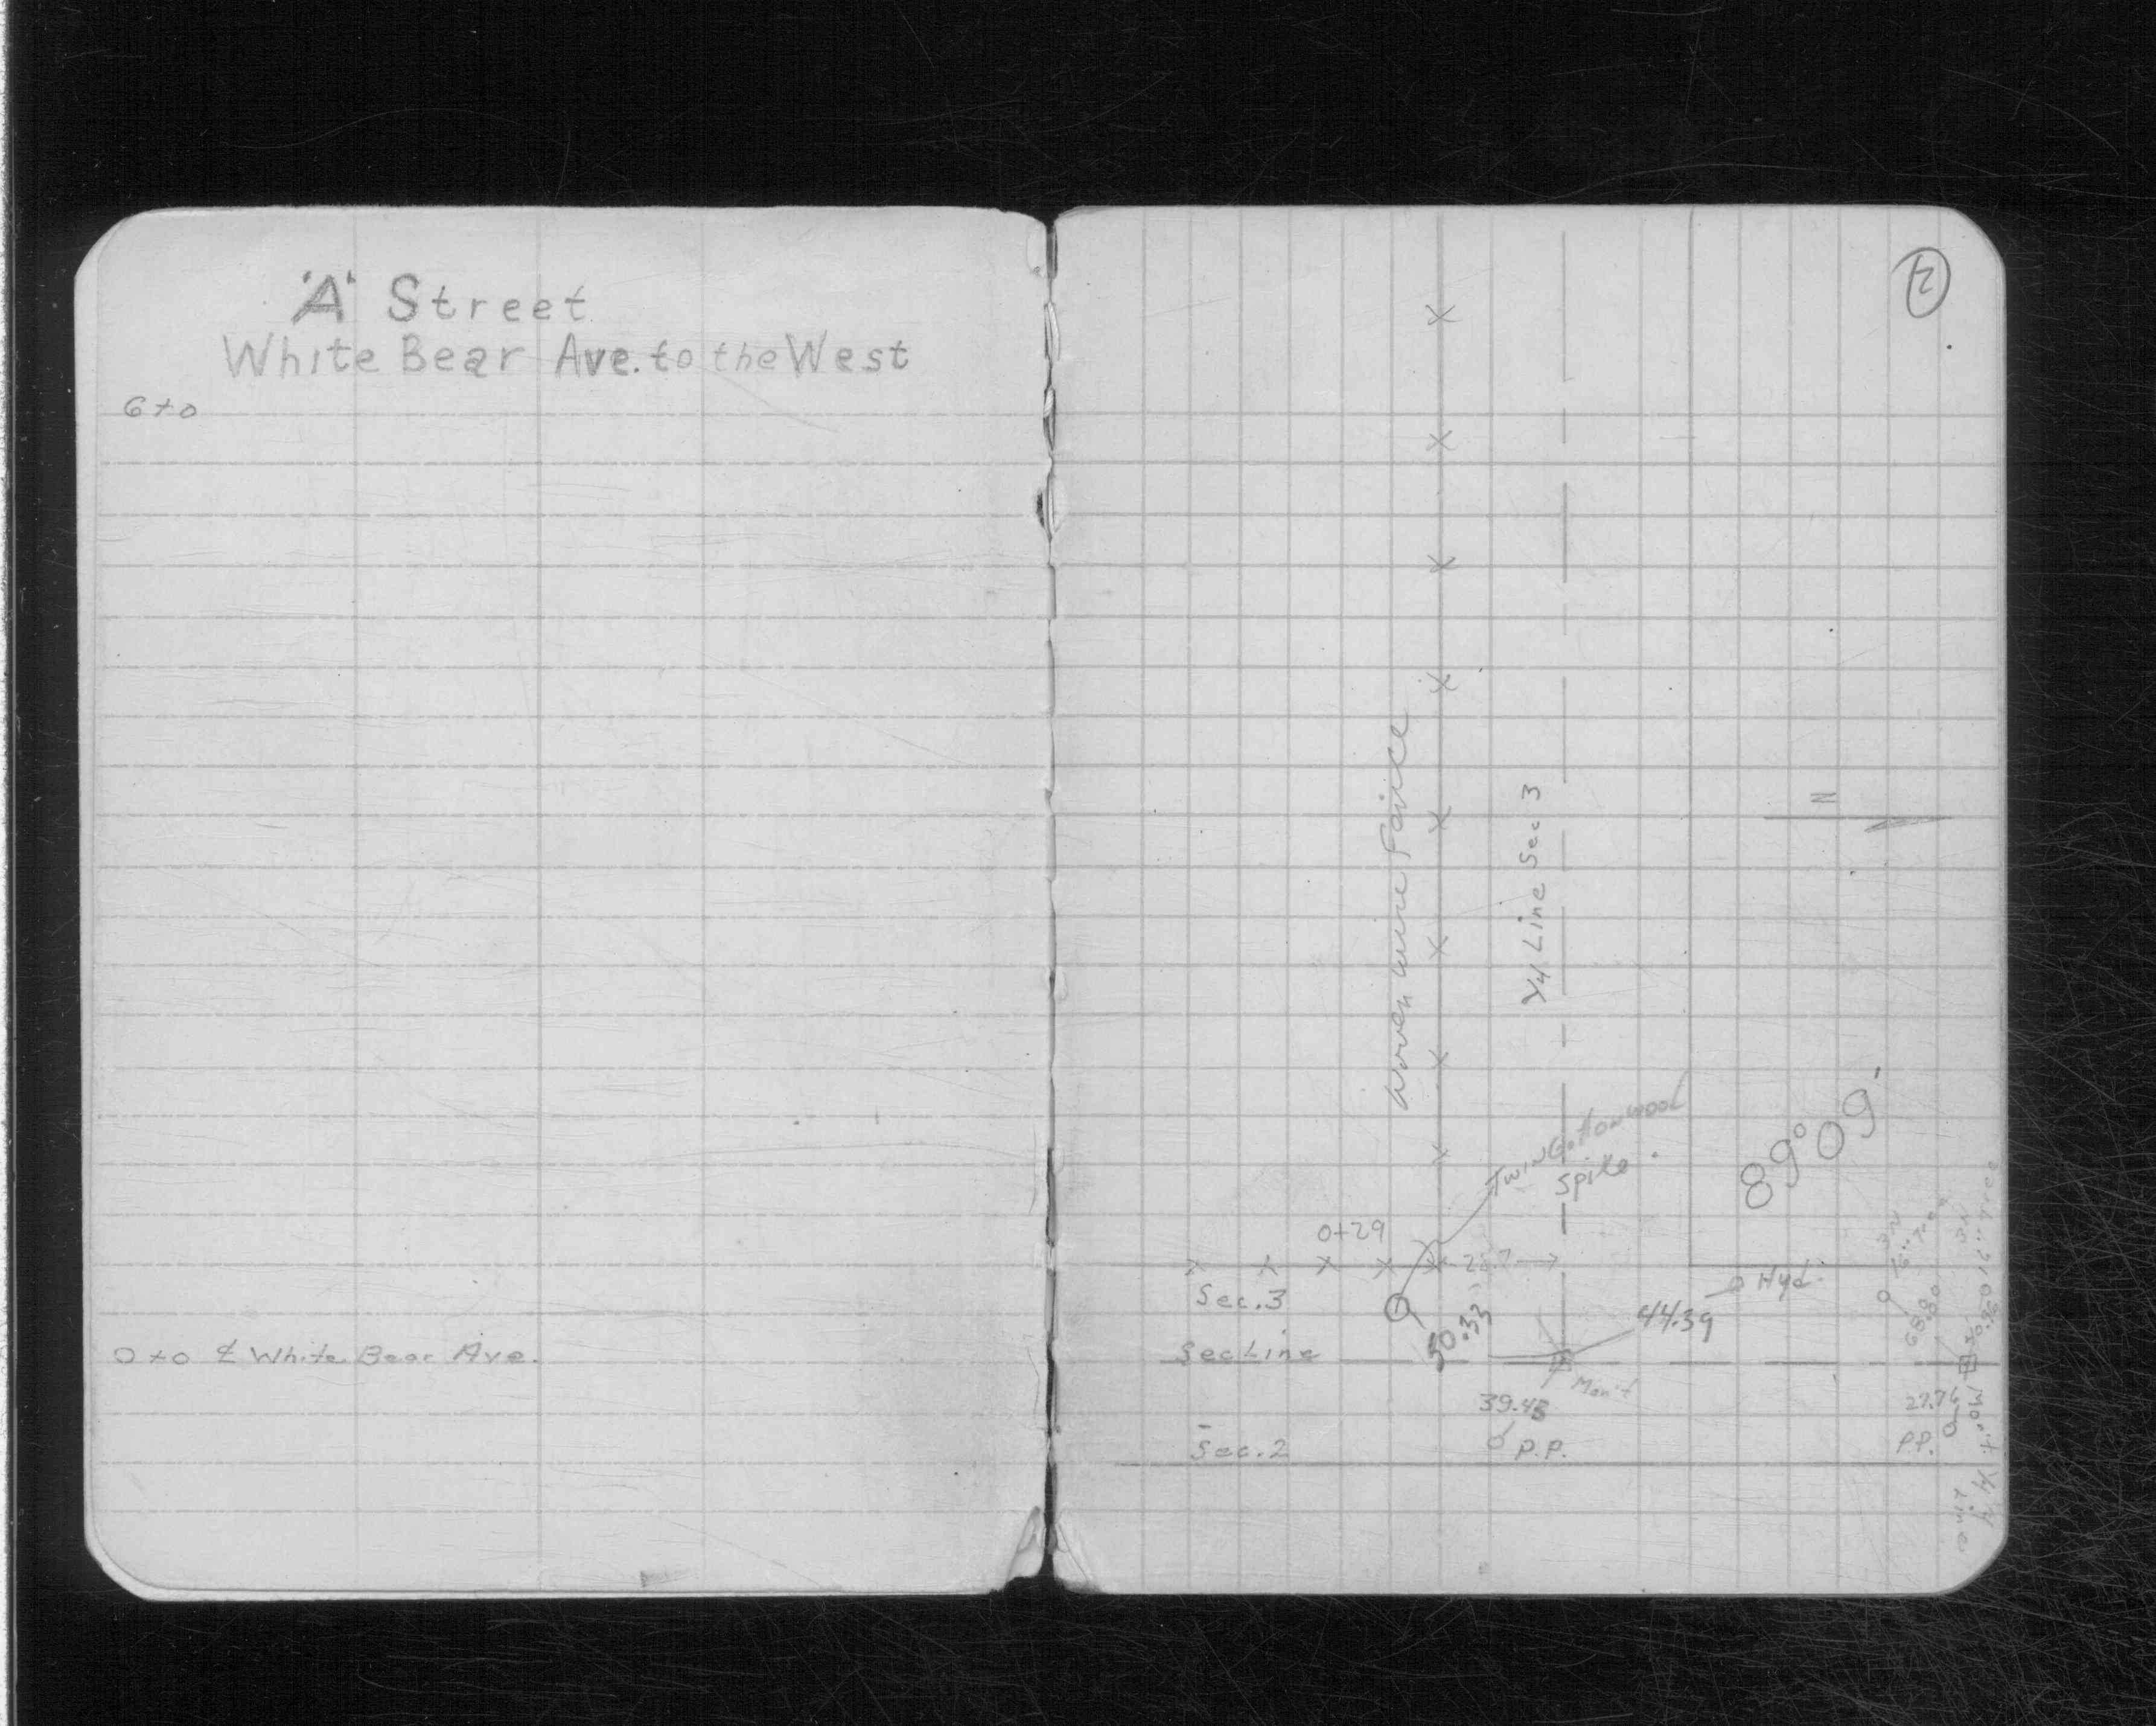 'A' Street
White Bear Ave. to the West
6+0
0+0 ⅊ White Bear Ave.
2
N
Woven wire Fence
1/4 Line Sec 3
Twin Cottonwood
Spike
89°09'
0+29
Hyd.
Sec.3
50.33
44.39
68.80
Sec Line
Mon't
39.43
27.76
P.P.
P.P.
Sec.2
Mo't
1/4
Line